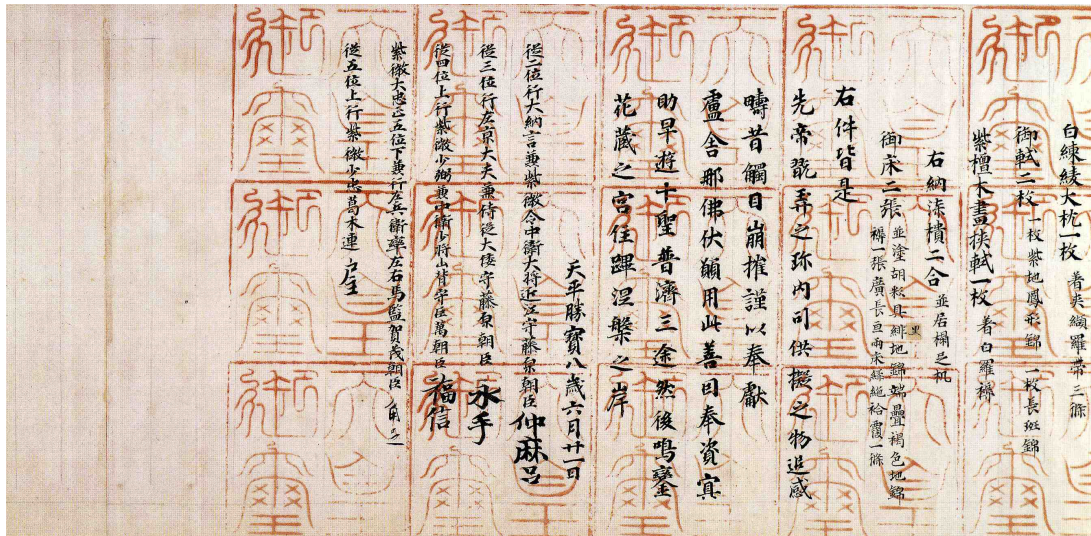 白練綾大枕一枚 着夾纈羅帯三條
御軾二枚 一枚紫地鳳形錦 一枚長斑錦
紫檀木畫挾軾一枚 着白羅褥
右納漆樻二合 並居榻足机
御床二張 並塗胡粉具緋地錦端疊褐色地錦
褥一張廣長亘兩床緑絁袷覆一條
右件皆是
先帝翫弄之珎内司供擬之物追感
疇昔觸目崩摧謹以奉獻
盧舎那佛伏願用此善因奉資冥
助早遊十聖普濟三途然後鳴鑾
花蔵之宮住蹕涅槃之岸
天平勝寳八歳六月廿一日
従二位行大納言兼紫微令中衛大将近江守藤原朝臣仲麻呂
従三位行左京大夫兼侍従大倭守藤原朝臣永手
従四位上行紫微少弼兼中衛少将山背守巨萬朝臣福信
紫微大忠正五位下兼行左兵衛率左右馬監賀茂朝臣角足
従五位上行紫微少忠葛木連戸主
天皇御璽